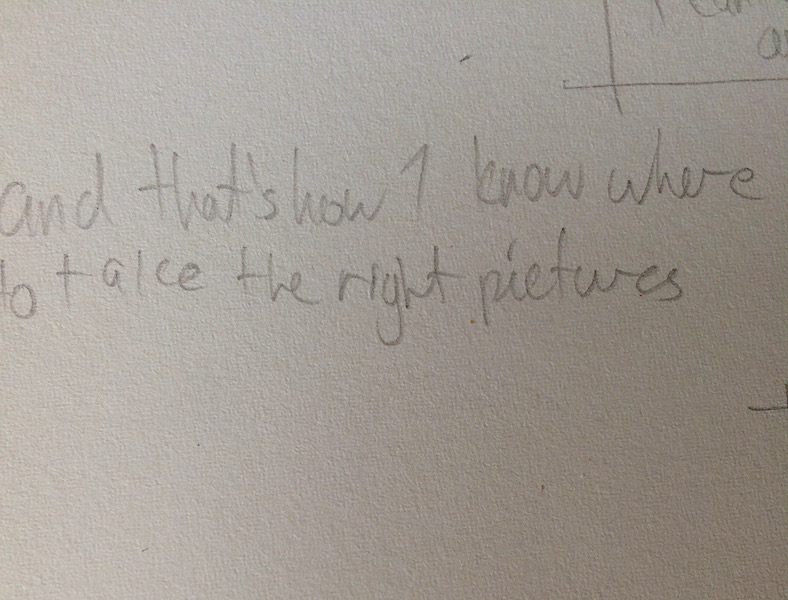 and that's how I know where
to take the right pictures